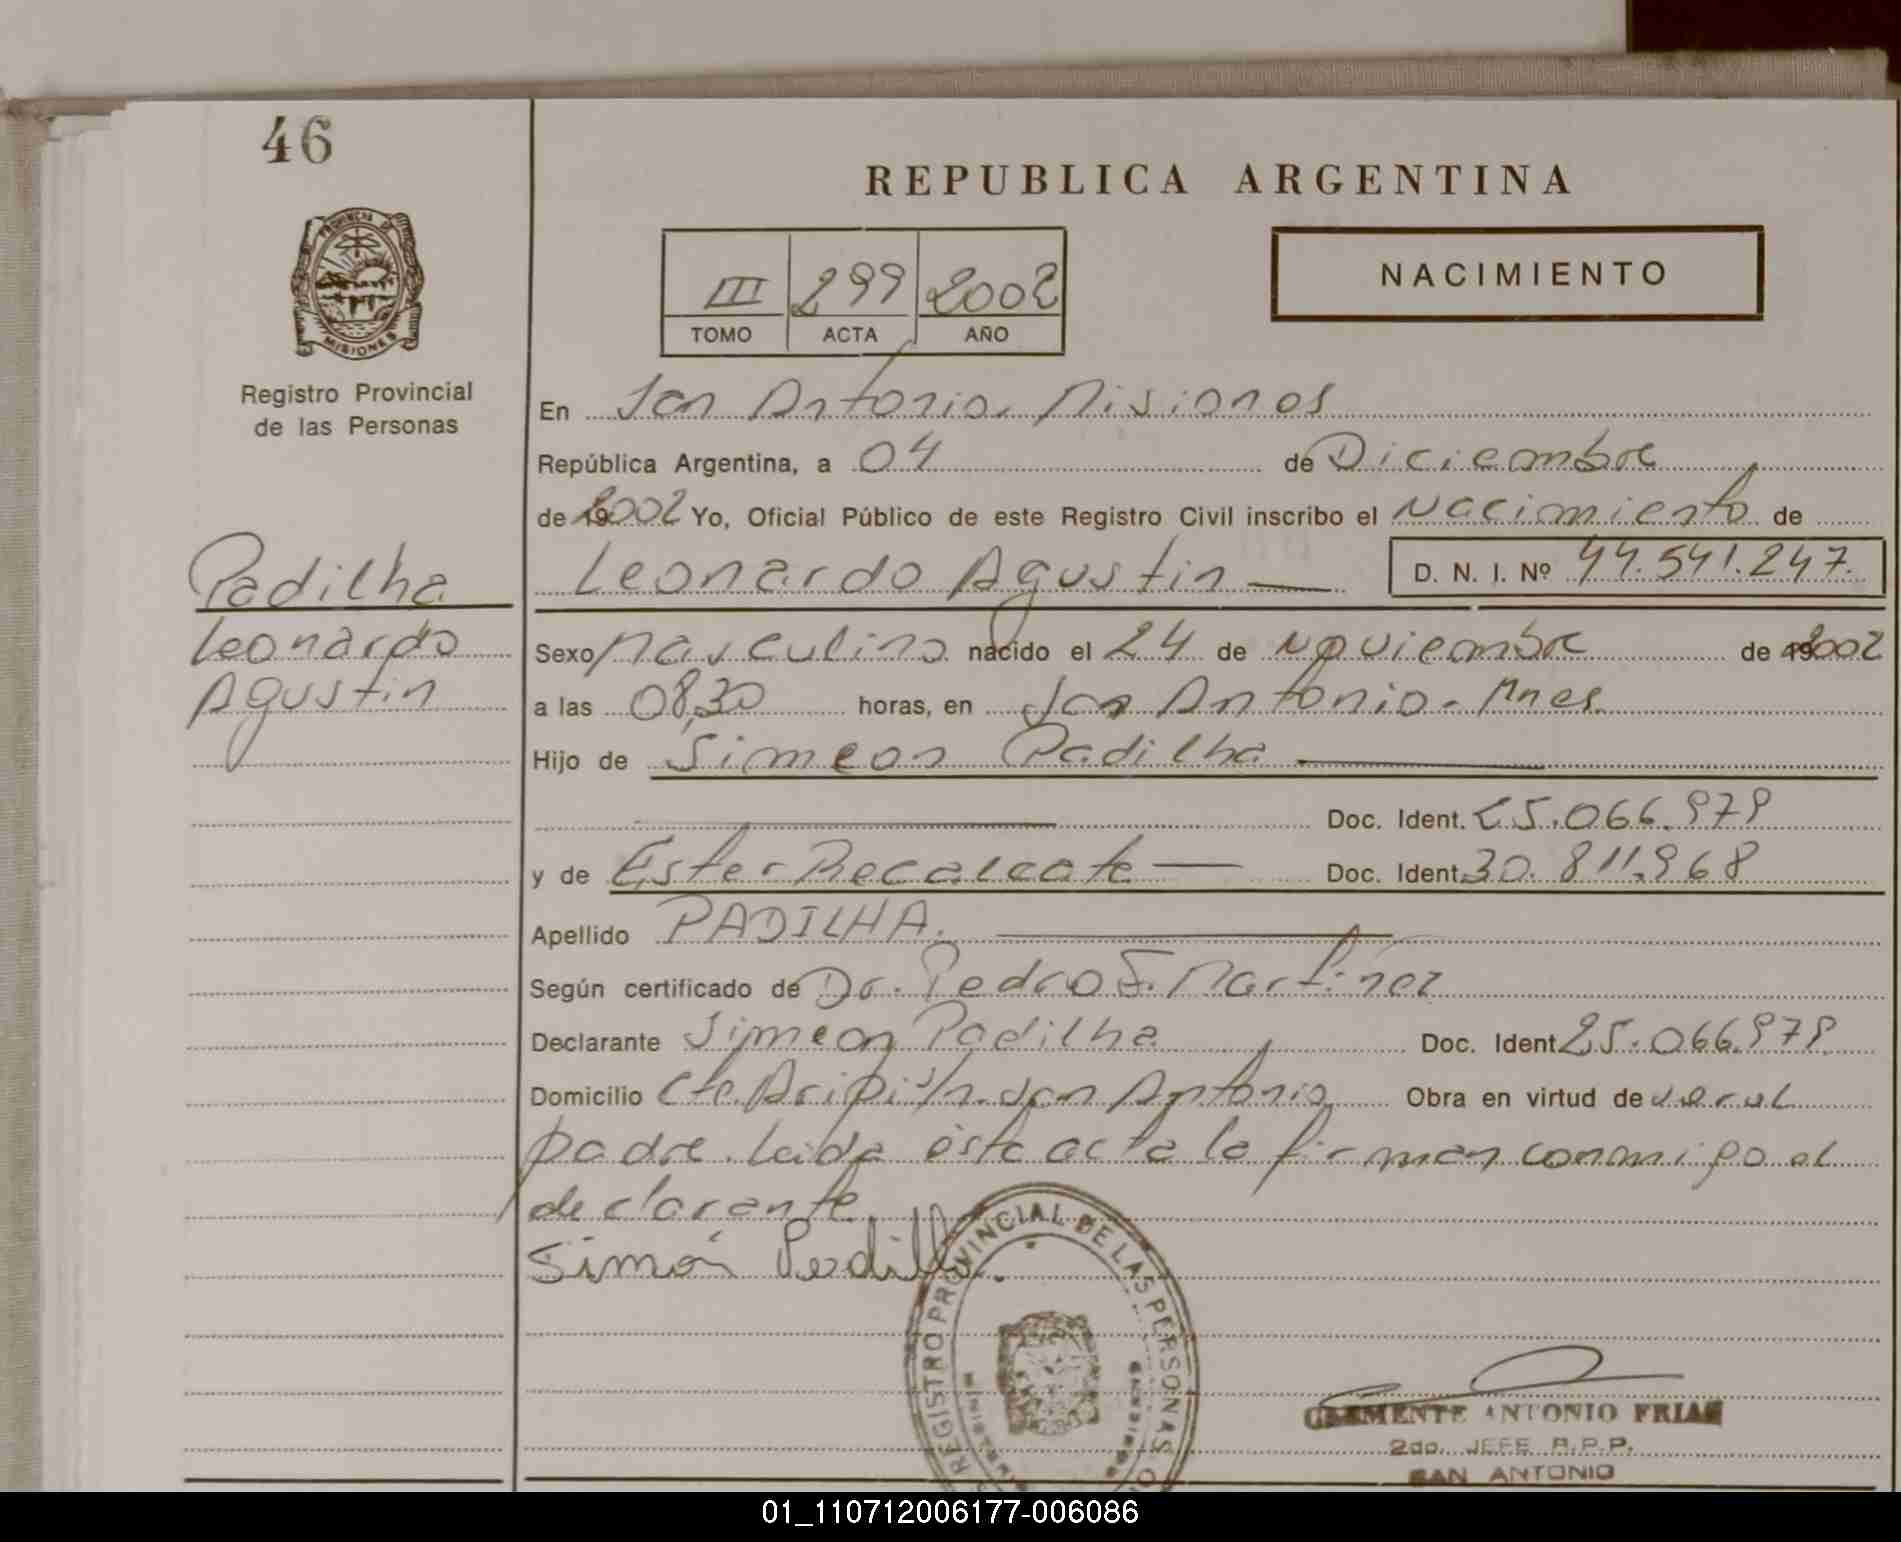 46
REPUBLICA ARGENTINA
PROVINCIA DE
MISIONES
Registro Provincial
de las Personas
III 299 2002
TOMO ACTA AÑO
NACIMIENTO
En San Antonio. Misiones
República Argentina, a 04 de Diciembre
de 2002 Yo, Oficial Público de este Registro Civil inscribo el Nacimiento de
Leonardo Agustin D. N. I. Nº 44.541.247.
Padilha
Leonardo
Agustin
Sexo Masculino nacido el 24 de Noviembre de 2002
a las 08,30 horas, en San Antonio. Mnes.
Hijo de Simeon Padilha
Doc. Ident. 25.066.979
y de Ester Recalcate Doc. Ident. 30.811.968
Apellido PADILHA.
Según certificado de Dr. Pedro F. Martinez
Declarante Simeon Padilha Doc. Ident. 25.066.979
Domicilio Cte. S/n. San Antonio Obra en virtud de ser el
padre. Leida esta acta la firman conmigo el
declarante
Simón Padilha
REGISTRO PROVINCIAL DE LAS PERSONAS
CLEMENTE ANTONIO FRIAS
2do. JEFE R.P.P.
SAN ANTONIO
01_110712006177-006086